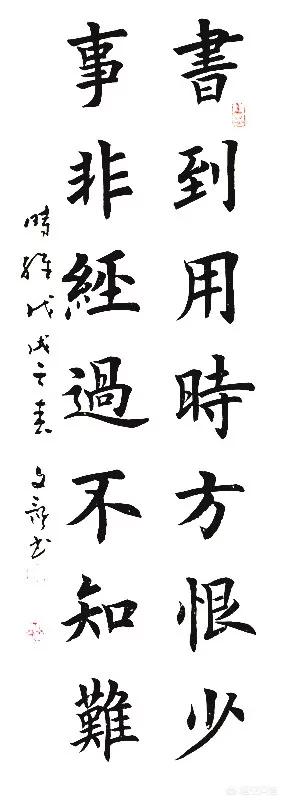 書到用時方恨少
事非經過不知難
時維戊戌之春